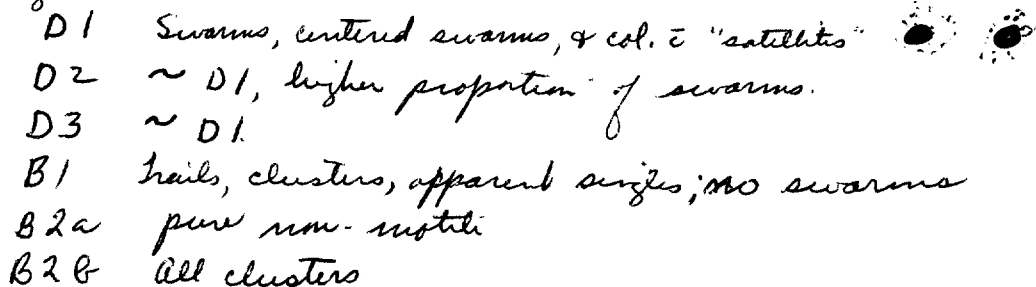 D1 Swarms, centered swarms, & col. c̄ "satellites"
D2 ~ D1, higher proportion of swarms.
D3 ~ D1.
B1 Trails, clusters, apparent singles; no swarms
B2a pure non-motile
B2b All clusters